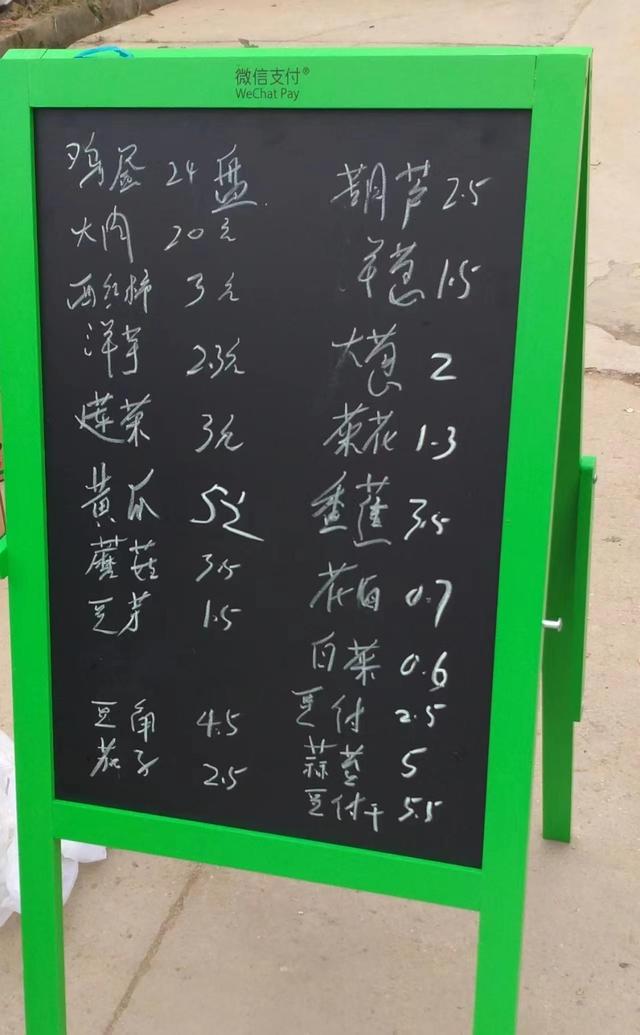 微信支付®
WeChat Pay
鸡蛋 24 盘
大肉 20元
西红柿 3元
洋芋 2.3元
莲菜 3元
黄瓜 5元
蘑菇 3.5
豆芽 1.5
豆角 4.5
茄子 2.5
葫芦 2.5
洋葱 1.5
大葱 2
菜花 1.3
香蕉 3.5
花白 0.7
白菜 0.6
豆付 2.5
蒜苔 5
豆付干 5.5